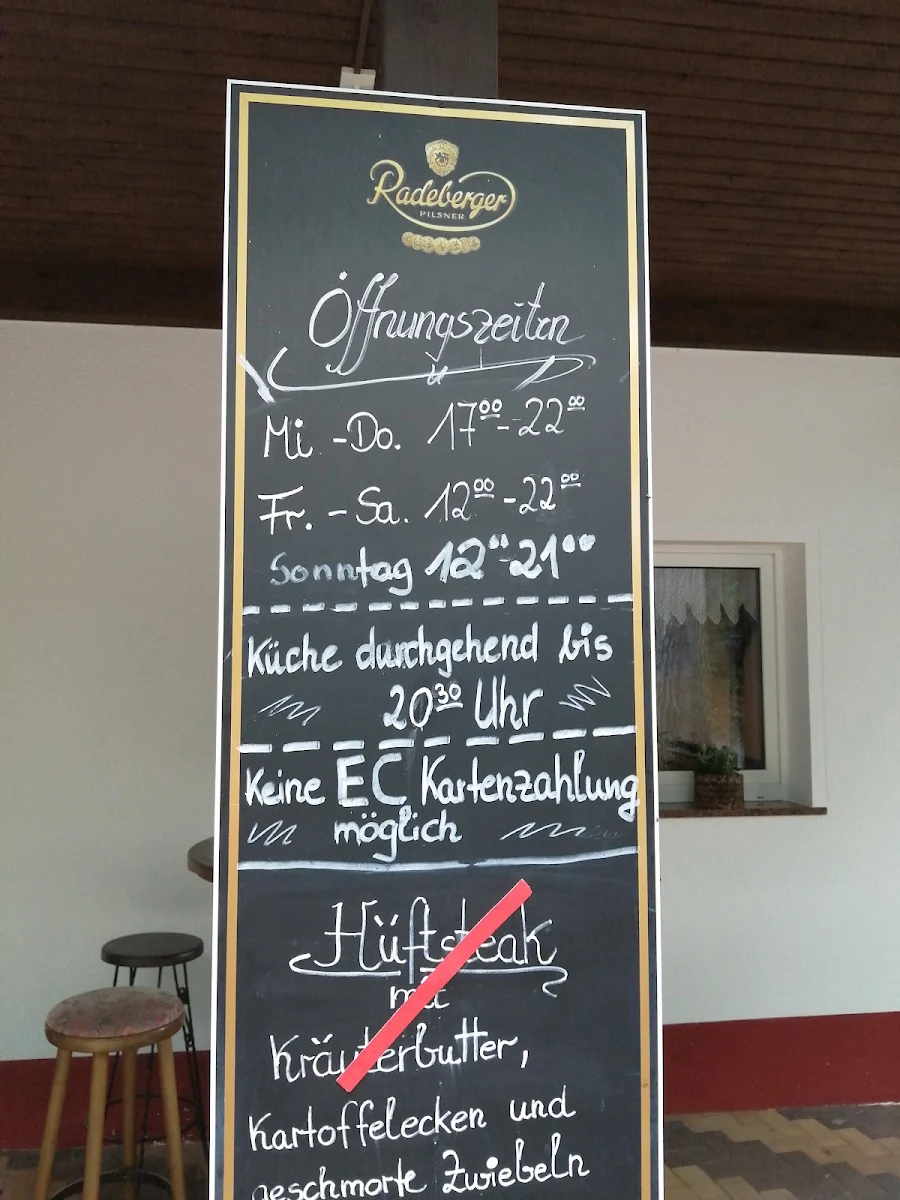 Radeberger
PILSNER
Öffnungszeiten
Mi. -Do. 17⁰⁰-22⁰⁰
Fr. - Sa. 12⁰⁰-22⁰⁰
Sonntag 12⁰⁰-21⁰⁰
Küche durchgehend bis
20³⁰ Uhr
Keine EC Kartenzahlung
möglich
Hüftsteak
mit
Kräuterbutter,
Kartoffelecken und
geschmorte Zwiebeln